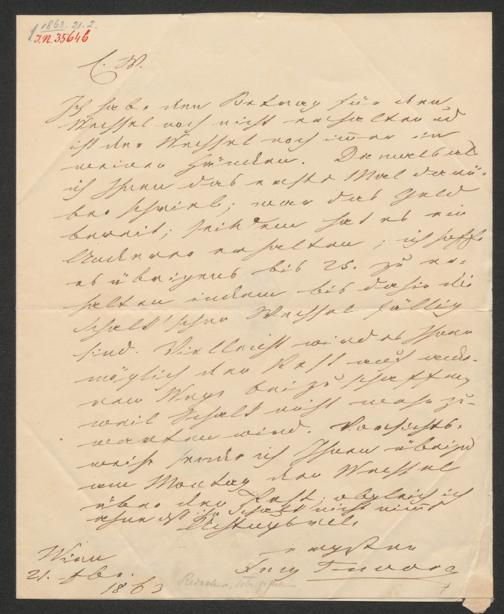 1863.21.2.
I.N. 35646
E. W.
Ich habe den Betrag für den
Wechsel noch nicht erhalten und
ist der Wechsel noch immer in
meinen Händen. Damals als
ich Ihnen das erste Mal darü-
ber schrieb, war das Geld
bereit; seitdem hat es ein
Anderer erhalten; ich hoffe
es übrigens bis 25. zu er-
halten indem bis dahin die
Wechsel fällig
sind. Vielleicht wird es Ihnen
möglich den Rest auf ande-
rem Wege beizuschaffen
weil nicht mehr zu-
warten wird. Vorsichts-
weise sende ich Ihnen übrigens
am Montag den Wechsel
über den Rest, obgleich ich
nicht
Wien
21. 1863